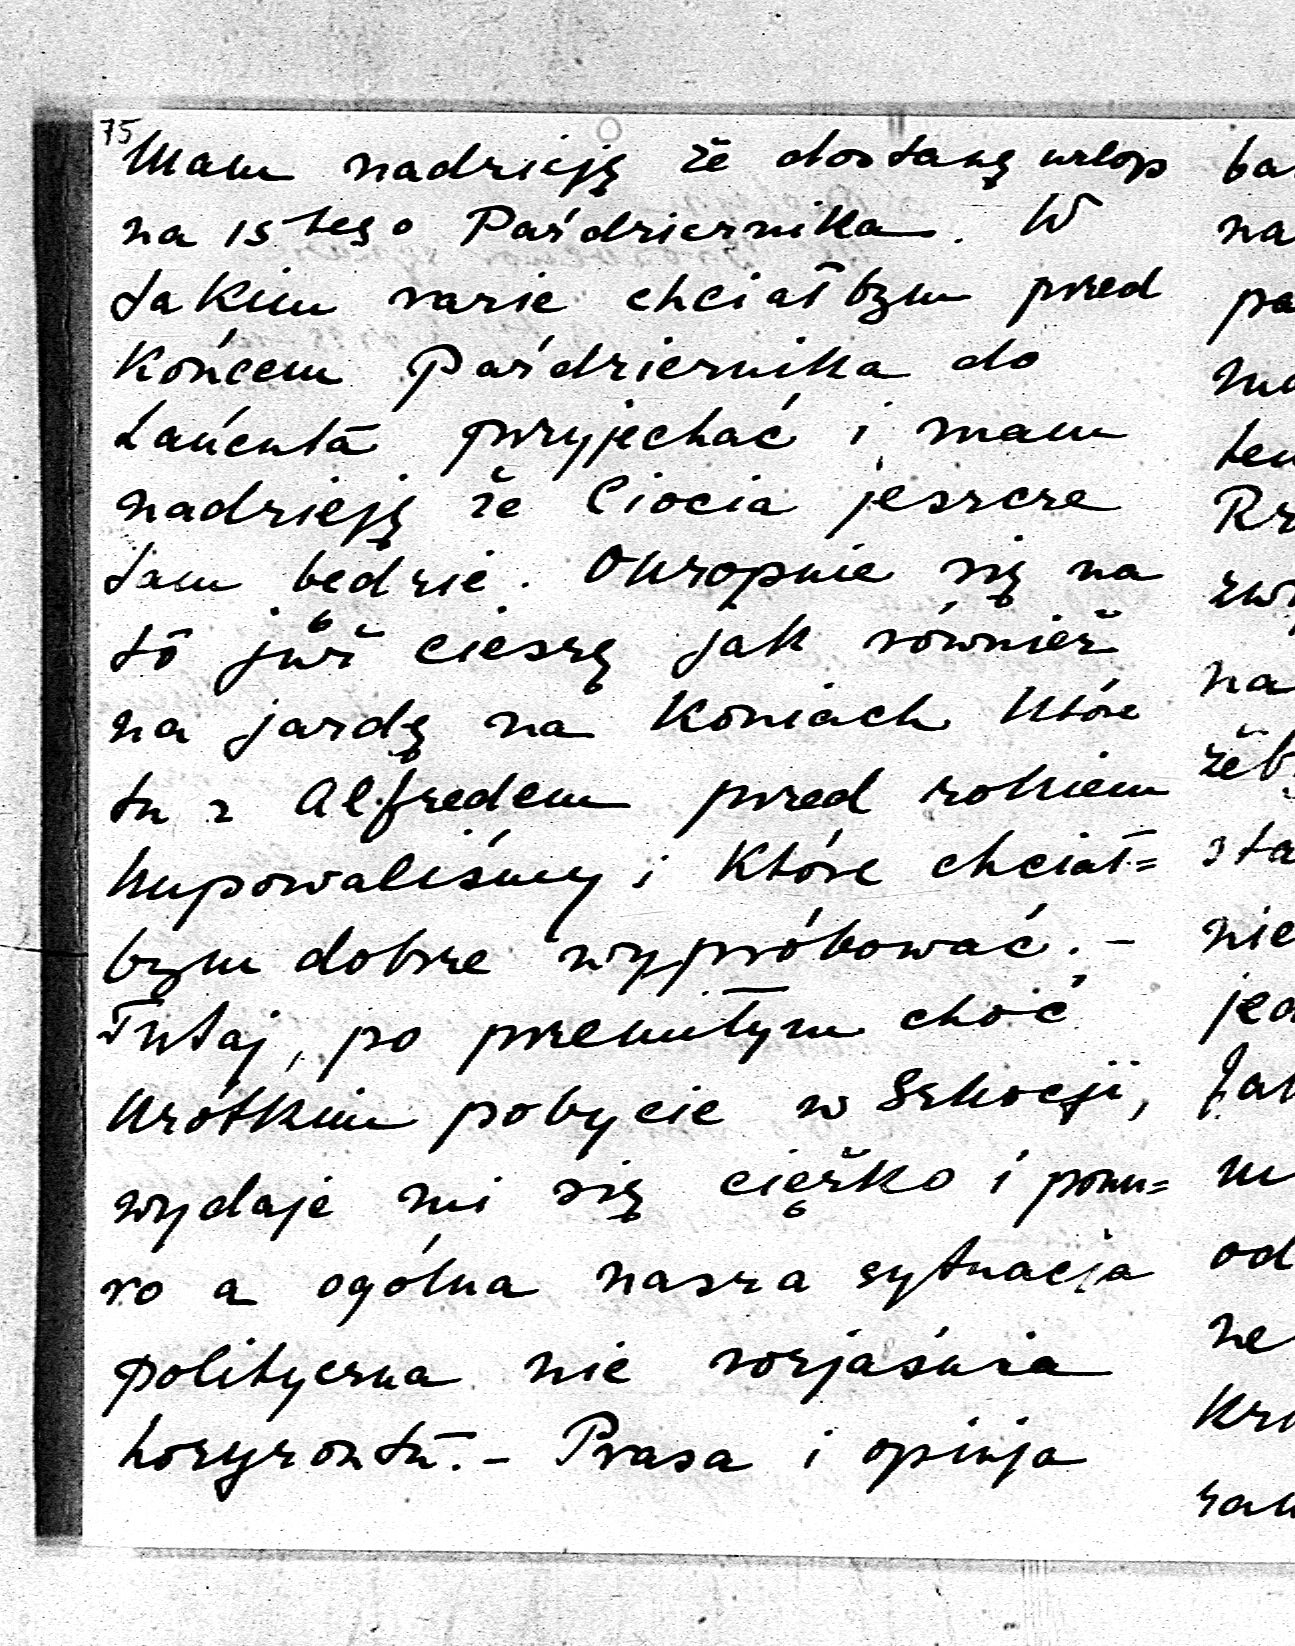 75
Mam nadzieję że dostanę urlop
na 15tego Października. W
takim razie chciałbym pred
Końcem Października do
Łańcuta pryjechać i mam
nadzieję że Ciocia jeszcze
tam będzie. Okropnie się na
to już cieszę jak również
na jazdę na Koniach Które
tu z Alfredem pred rokiem
kupowaliśmy i Które chciał=
bym dobre wypróbować. -
Tutaj, po premiłym choć
krótkim pobycie w Szkocji,
wydaje mi się ciężko i ponu=
ro a ogólna nasza sytuacja
polityczna nie rozjaśnia
horyzontu. - Prasa i opinja
ba
na
pa
ma
tem
Rz
zwy
na
żeb
sta
nie
jed
Jak
m
od
ne
Kr
zau